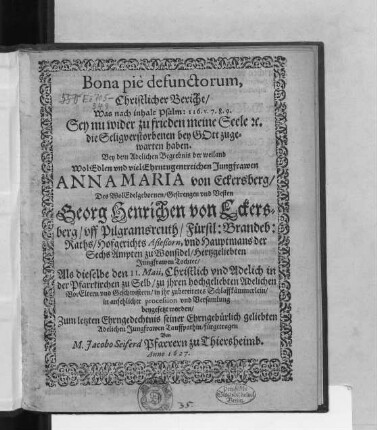 Bona piè defunctorum,
Christlicher Bericht/
Was nach inhalt Psalm: 116. v. 7. 8. 9.
Sey nu wider zu frieden meine Seele ꝛc.
die Seligverstorbenen bey GOtt zuge-
warten haben.
Bey dem Adelichen Begrebnis der weiland
WolEdlen vnd viel Ehrntugentreichen Jungfrawen
ANNA MARIA von Eckersberg/
Des WolEdelgebornen/ Gestrengen vnd Vesten
Georg Henrichen von Eckers-
berg/ vff Pilgramsreuth/ Fürstl: Brandeb:
Raths/ Hofgerichts Assessorn, vnd Hauptmans der
Sechs Ampten zu Wonsidel/ Hertzgeliebten
Jungfrawen Tochter/
Als dieselbe den 11. Maii, Christlich vnd Adelich in
der Pfarrkirchen zu Selb/ zu jhren hochgeliebten Adelichen
VorEltern vnd Geschwistern/ in jhr zubereitetes Schlaffkämmerlein/
in ansehlicher procession vnd Versamlung
beygesetzt worden/
Zum letzten Ehrngedechtnis seiner Ehrngebürlich geliebten
Adelichen Jungfrawen Tauffpathin/ fürgetragen
Von
M. Jacobo Seiferd Pfarrern zu Thiersheimb.
Anno 1627.
35.